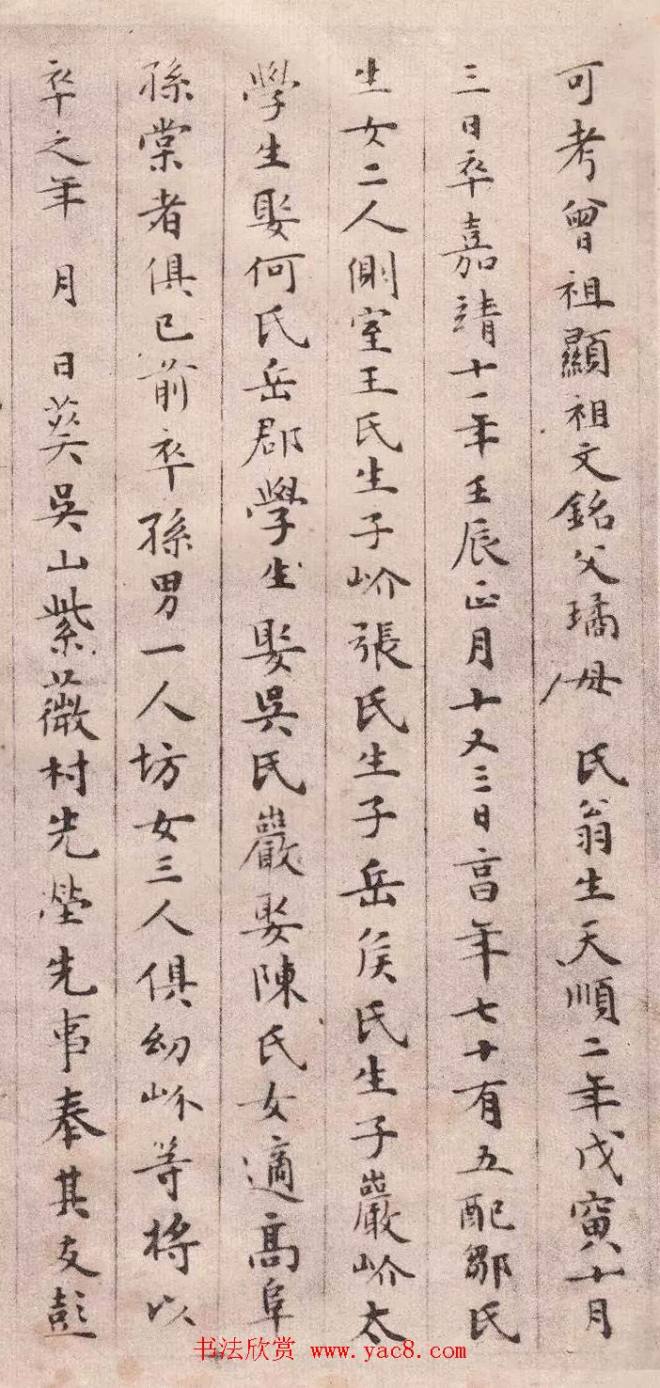 可考曾祖顯祖文銘父璚母 氏翁生天順二年戊寅十月
三日卒嘉靖十一年壬辰正月十又三日享年七十有五配鄒氏
生女二人側室王氏生子岕張氏生子岳侯氏生子巖岕太
學生娶何氏岳郡學生娶吳氏巖娶陳氏女適高阜
孫棠者俱已前卒孫男一人坊女三人俱幼岕等將以
卒之年 月 日葬吳山紫薇村先塋先事奉其友彭
书法欣赏 www.yac8.com